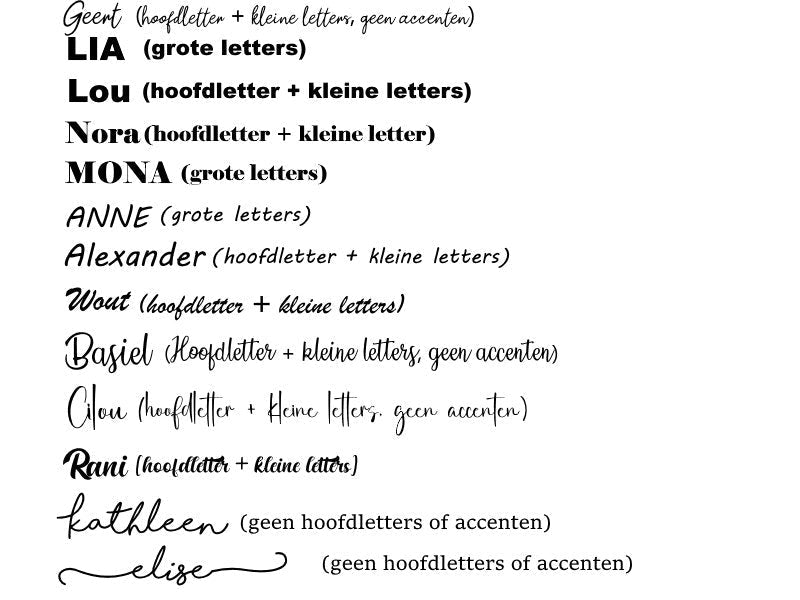 Geert (hoofdletter + kleine letters, geen accenten)
LIA (grote letters)
Lou (hoofdletter + kleine letters)
Nora (hoofdletter + kleine letter)
MONA (grote letters)
ANNE (grote letters)
Alexander (hoofdletter + kleine letters)
Wout (hoofdletter + kleine letters)
Basiel (Hoofdletter + kleine letters, geen accenten)
Cilou (hoofdletter + kleine letters. geen accenten)
Rani (hoofdletter + kleine letters)
kathleen (geen hoofdletters of accenten)
elise (geen hoofdletters of accenten)